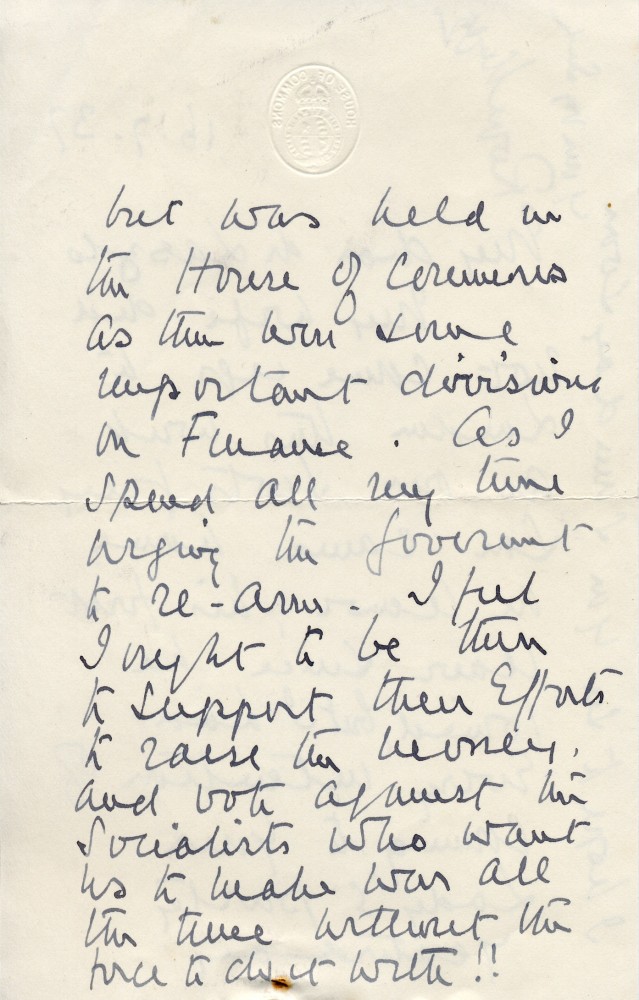 HOUSE OF COMMONS
but was held in
the House of Commons
as there were some
important divisions
on Finance. As I
spend all my time
urging the Government
to re-arm. I feel
I ought to be there
to support their Efforts
to raise the money,
and vote against the
Socialists who want
us to make war all
the time without the
force to do it with!!